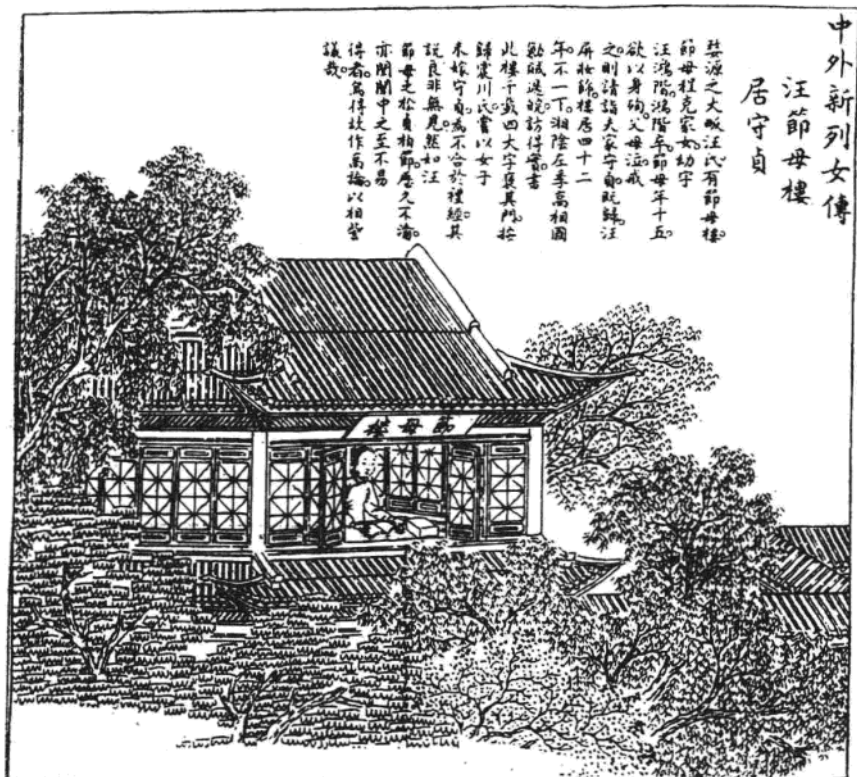 中外新列女傳
汪節母樓
居守貞
婺源之大畈汪氏有節母樓
節母程克家女幼字
汪鴻階鴻階卒節母年十五
欲以身殉父母泣戒
之則請詣夫家守貞既歸汪
屏妝飾樓居四十二
年不一下湘陰左季高相國
勦賊過皖訪得實書
此樓千歲四大字褒其門按
歸震川氏嘗以女子
未嫁守貞為不合於禮經其
說良非無見然如汪
節母之松貞柏節歷久不渝
亦閨閫中之至不易
得者烏得故作高論以相訾
議哉
節母樓